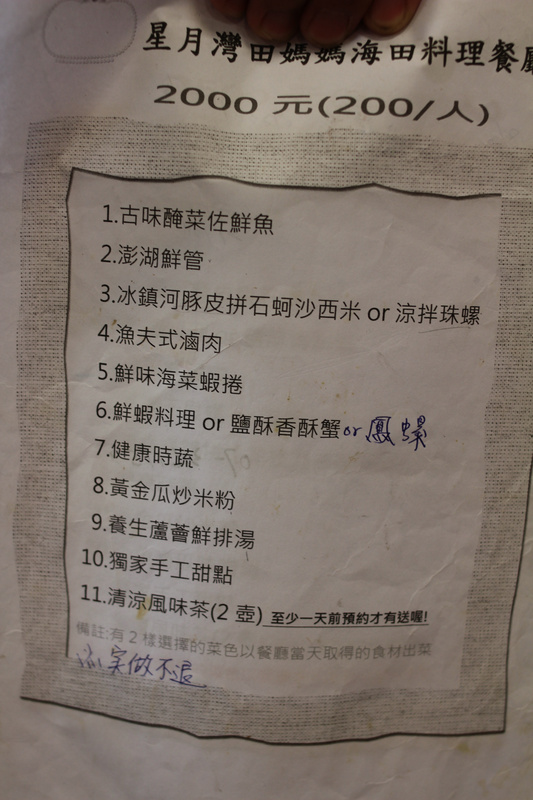 星月灣田媽媽海田料理餐廳
2000 元(200/人)
1.古味醃菜佐鮮魚
2.澎湖鮮管
3.冰鎮河豚皮拼石蚵沙西米 or 涼拌珠螺
4.漁夫式滷肉
5.鮮味海菜蝦捲
6.鮮蝦料理 or 鹽酥香酥蟹or 鳳螺
7.健康時蔬
8.黃金瓜炒米粉
9.養生蘆薈鮮排湯
10.獨家手工甜點
11.清涼風味茶(2 壺) 至少一天前預約才有送喔!
備註:有 2 樣選擇的菜色以餐廳當天取得的食材出菜
実做不退